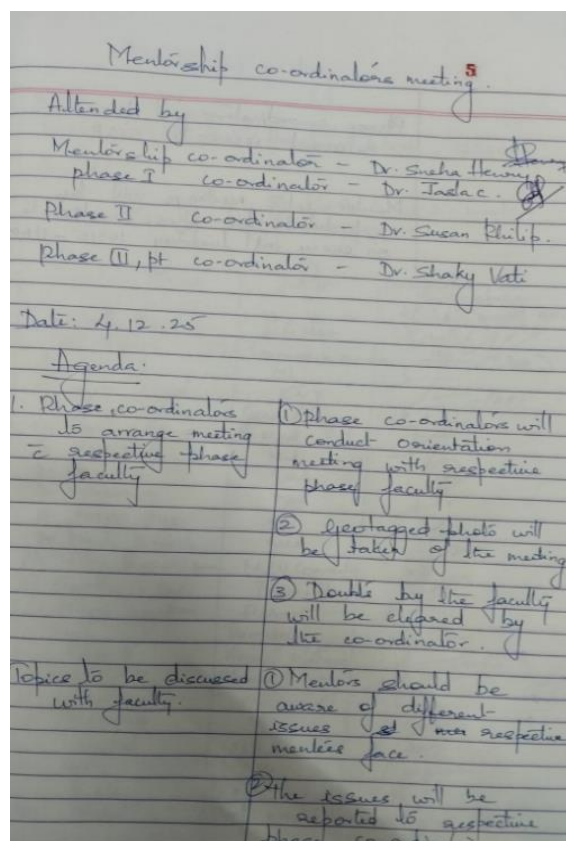 Mentorship co-ordinators meeting.
5
Attended by
Mentorship co-ordinator - Dr. Sneha Henry
phase I co-ordinator - Dr. Jasla c.
Phase II co-ordinator - Dr. Susan Philip.
Phase III, pt co-ordinator - Dr. Shaky Vati
Date: 4.12.25
Agenda.
1. Phase co-ordinators
to arrange meeting
c̄ respective phase
faculty
① phase co-ordinators will
conduct orientation
meeting with respective
phase faculty
② Geotagged photo will
be taken of the meeting
③ Doubts by the faculty
will be cleared by
the co-ordinator.
Topics to be discussed
with faculty.
① Mentors should be
aware of different
issues respective
mentees face.
② the issues will be
reported to respective
phase